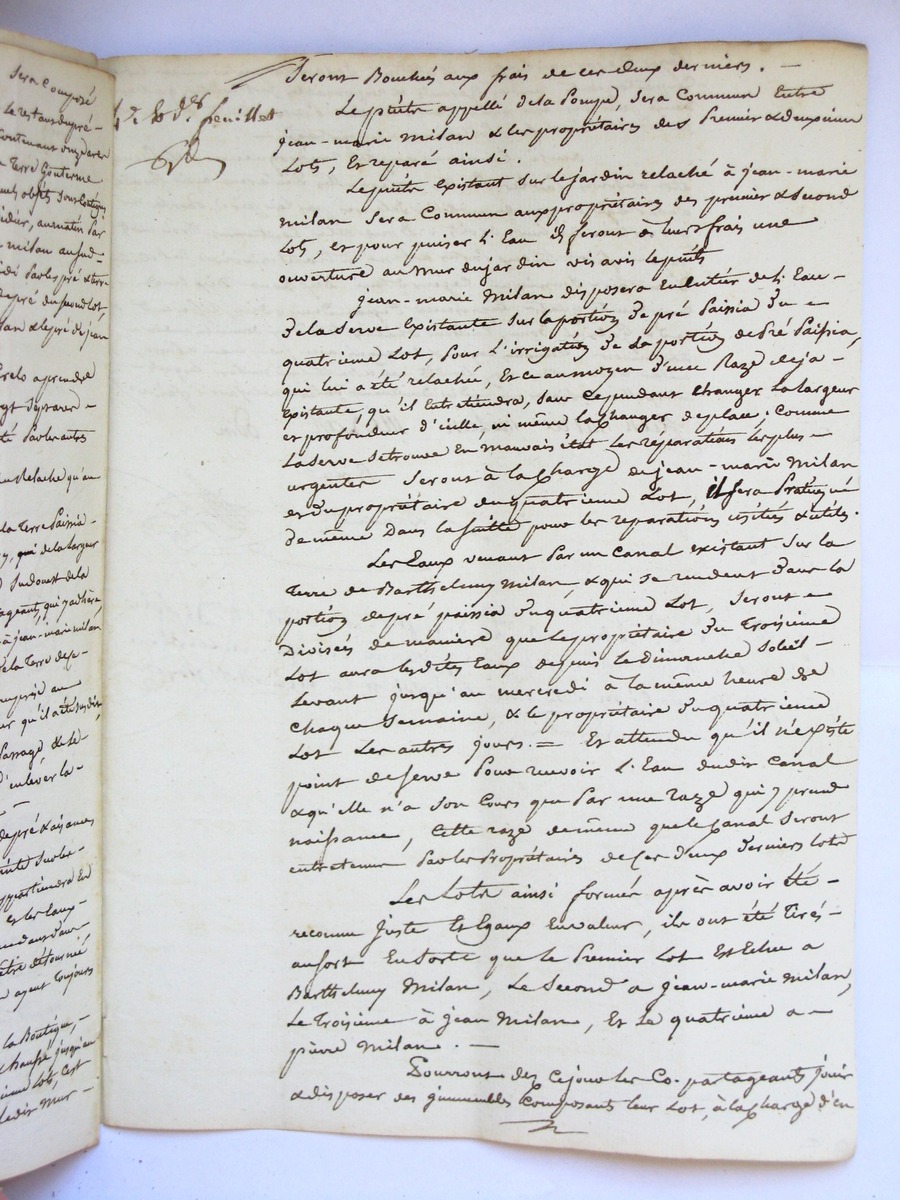 Sera Composé
le restant du pré-
Contenant onze ares
Terre Contenue
milan au sud-
de jean
aprendre
par les autres
Relaché qu'au
la Terre Paissia-
qui de la largeur
Sudouest de la
qui y adhère,
à jean-marie milan
de la Terre de ce-
qu'il a été
Passage, & le
d'enlever la-
de pré & aisances
appartiendra En
et les Eaux-
être détournée
ayent Toujours
la Boutique,-
jusqu'au
Lot, c'est
le dit Mur-
feuillet
Seront Bouchés aux frais de ces deux derniers. —
Le puits appellé de la Pompe, Sera Commun Entre
jean-marie Milan & les propriétaires des Premier & deuxieme
Lots, Et reparé ainsi.
Le puits Existant Sur le jardin relaché à jean-marie
milan Sera Commun aux propriétaires des premier & Second
Lots, et pour puiser l'Eau ils feront à leurs frais une
ouverture au Mur du jardin vis avis le puits
jean-marie Milan disposera En Entier de l'Eau-
de la Serve Existante Sur la portion de pré Paissia du =
quatrieme Lot, Pour l'irrigation de la portion de Pré Paissia,
qui lui a été relachée, Et ce au moyen d'une Raze deja-
Existante, qu'il Entretiendra, Sans Cependant Changer la largeur
et profondeur d'icelle, ni même la Changer de place. Comme
la Serve Se trouve En Mauvais état les reparations les plus =
urgentes Seront à la Charge de jean-marie Milan
et du propriétaire du quatrieme Lot, il Sera Pratiqué
de même Dans la Suitte pour les reparations usités & utiles.
Les Eaux venant Par un Canal existant Sur la
Terre de Barthelemy Milan, & qui se rendent dans la
portion de pré paissia du quatrieme Lot, Seront =
Divisées de maniere que le propriétaire du Troisieme
Lot aura les dites Eaux depuis le Dimanche Soleil-
Levant jusqu'au mercredi à la même heure de
Chaque Semaine, & le propriétaire du quatrieme
Lot les autres jours. = Et attendu qu'il n'éxiste
point de Serve Pour recevoir l'Eau du dit Canal
& qu'elle n'a Son Cours que Par une raze qui y prend
naissance, Cette raze de même que le Canal Seront
entretenus Par les Propriétaires de Ces deux derniers lots
Les Lots ainsi formés après avoir été-
reconnu Juste Et Egaux En valeur, ils ont été Tirés-
au sort En Sorte que le Premier Lot Est Echu a
Barthelemy Milan, Le Second a jean-marie Milan,
Le Troisieme à jean Milan, Et Le quatrieme a-
pierre Milan. —
Pourront des ce jour les Co-partageants jouir
& disposer des immeubles Composants leur Lot, à la Charge d'en